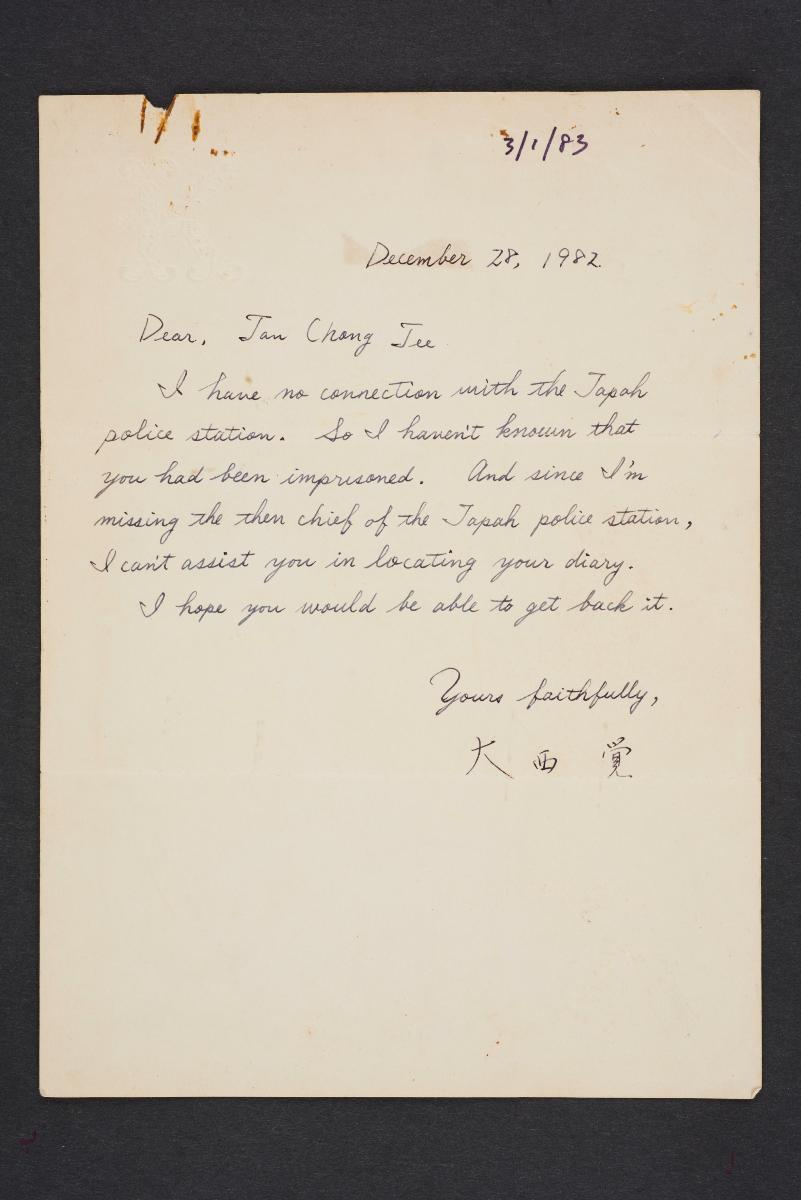 3/1/83
December 28, 1982.
Dear, Tan Chong Tee
I have no connection with the Tapah
police station. So I haven't known that
you had been imprisoned. And since I'm
missing the then chief of the Tapah police station,
I can't assist you in locating your diary.
I hope you would be able to get back it.
Yours faithfully,
大西覚